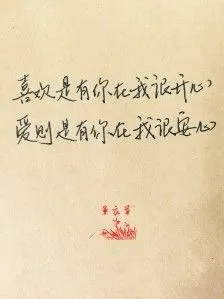 喜欢是有你在我很开心，
爱则是有你在我很安心